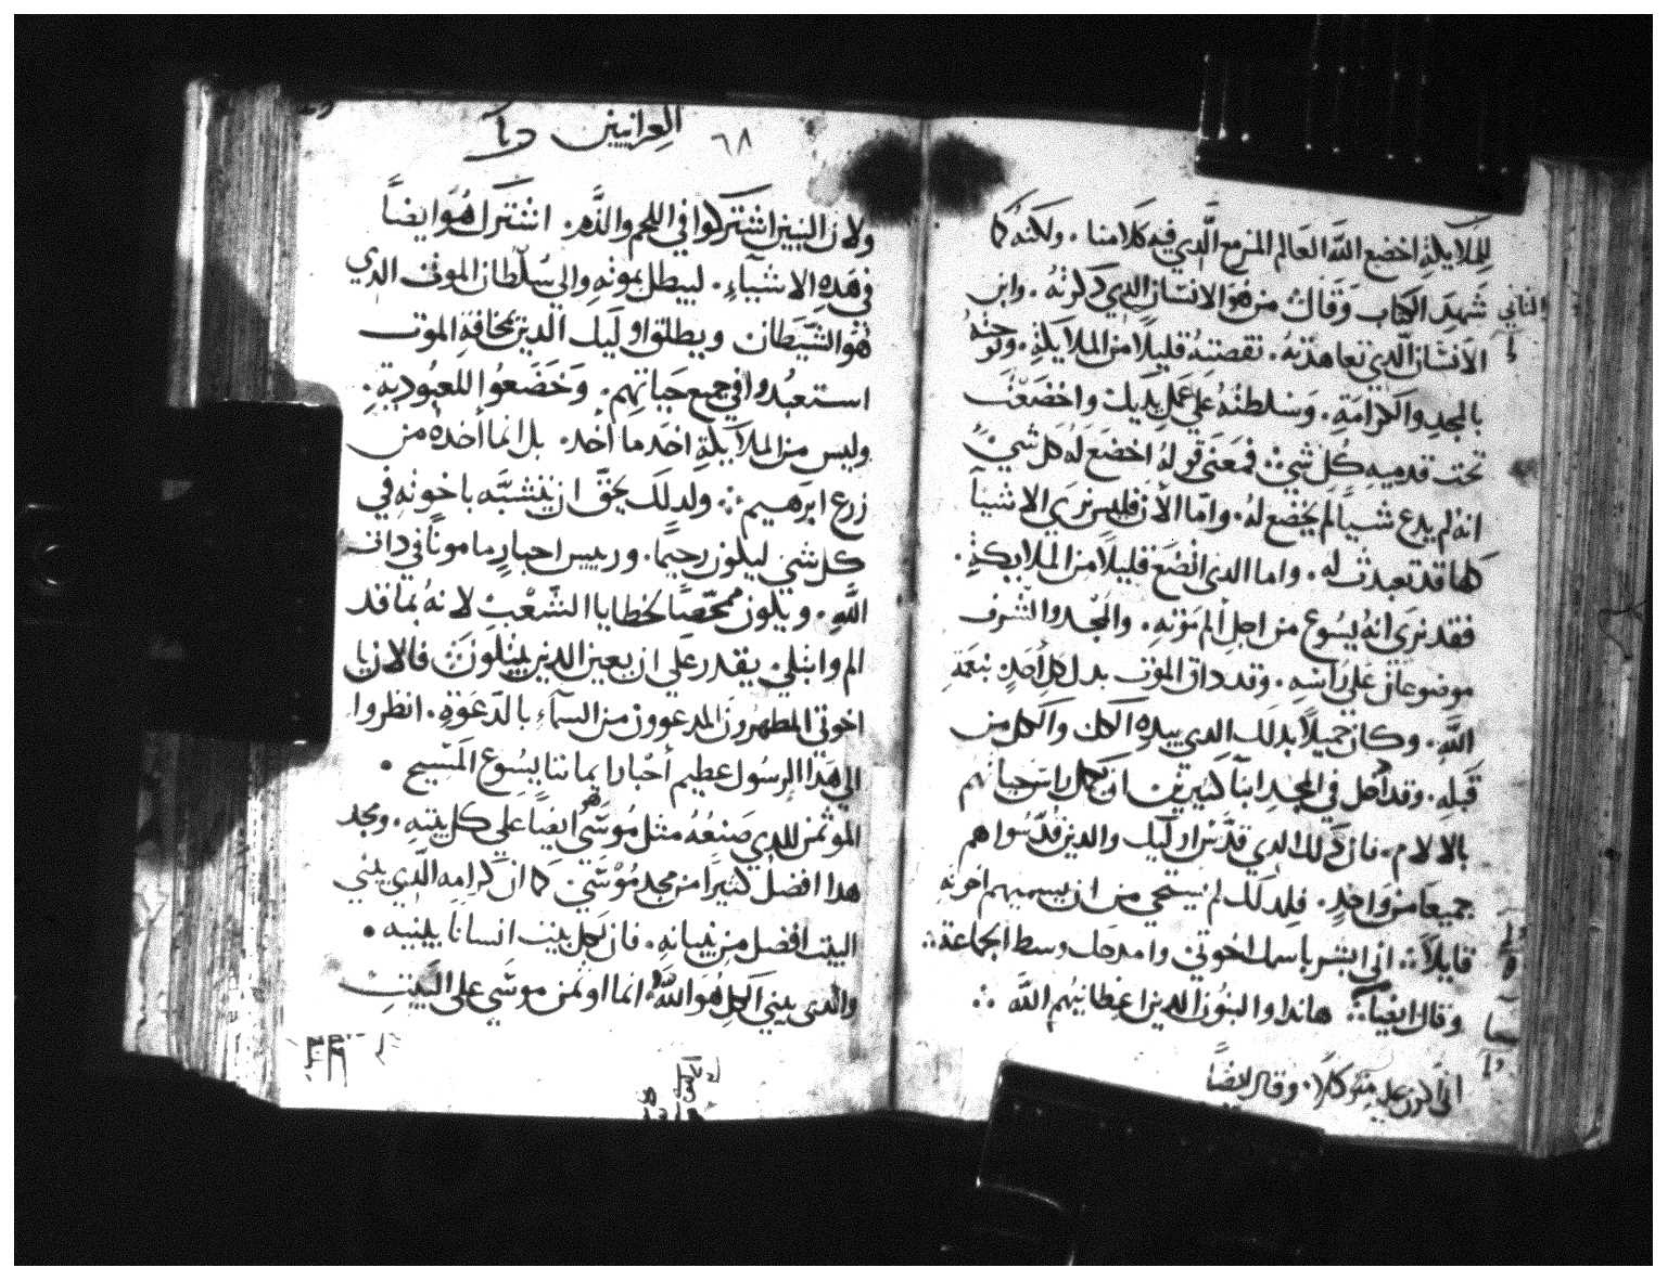 للملايكة اخضع الله العالم المزمع الذي فيه كلامنا. ولكنه كما
الثاني
شهد الكتاب وقال من هو الانسان الذي ذكرته. وابن
الانسان الذي تعاهدته. نقصته قليلًا من الملايكة. وتوجته
بالمجد والكرامة. وسلطته على عمل يديك واخضعت
تحت قدميه كل شي فمعنى قوله اخضع له كل شي
انه لم يدع شيًا لم يخضع له. واما الآن فليس نرى الاشيآ
كلها قد تعبدت له. واما الذي اتضع قليلًا من الملايكة.
فقد نرى انه يسوع من اجل الم موته. والمجد والشرف
موضوعان على راسه. وقد ذاق الموت بدل كل احد بنعمة
الله. وكان جميلًا بذلك الذي بيده الكل والكل من
قبله. وقد ادخل في المجد ابنآ كثيرين ان يكمل راس حياتهم
بالالام. فان ذلك الذي قدس اوليك والذين قدسوا هم
جميعا من واحد. فلذلك لم يستحي من ان يسميهم اخوته
قايلًا. اني ابشر باسمك اخوتي وامدحك وسط الجماعة
وقال ايضًا هانذا والبنون الذين اعطانيهم الله
اني اكون عليه متوكلًا. وقال ايضًا
٦٨
العبرانيين
ولان البنين اشتركوا في اللحم والدم. اشترك هو ايضًا
في هذه الاشياء. ليبطل بموته والي سلطان الموت الذي
هو الشيطان ويطلق اوليك الذين بمخافة الموت
استعبدوا في جميع حياتهم. وخضعوا للعبودية.
وليس من الملايكة احد ما أخذ. بل انما أخذه من
زرع ابرهيم ولذلك يحق ان يتشبه باخوته في
كل شي ليكون رحيمًا. ورييس احبار مامونًا في ذات
الله. ويكون ممحصًا لخطايا الشعب لانه بما قد
الم وابتلي. يقدر على ان يعين الذين يبتلون فالان يا
اخوتي المطهرون المدعوون من السمآء بالدعوة. انظروا
الى هذا الرسول عظيم أحبار ايماننا يسوع المسيح.
المؤتمن للذي صنعه مثل موسى ايضًا على كل بيته. ومجد
هذا افضل كثيرًا من مجد موسى كما ان كرامه الذي يبني
البيت افضل من بنيانه. فان لكل بيت انسانا يبنيه.
والذي يبني الكل هو الله. انما اوتمن موسى على البيت